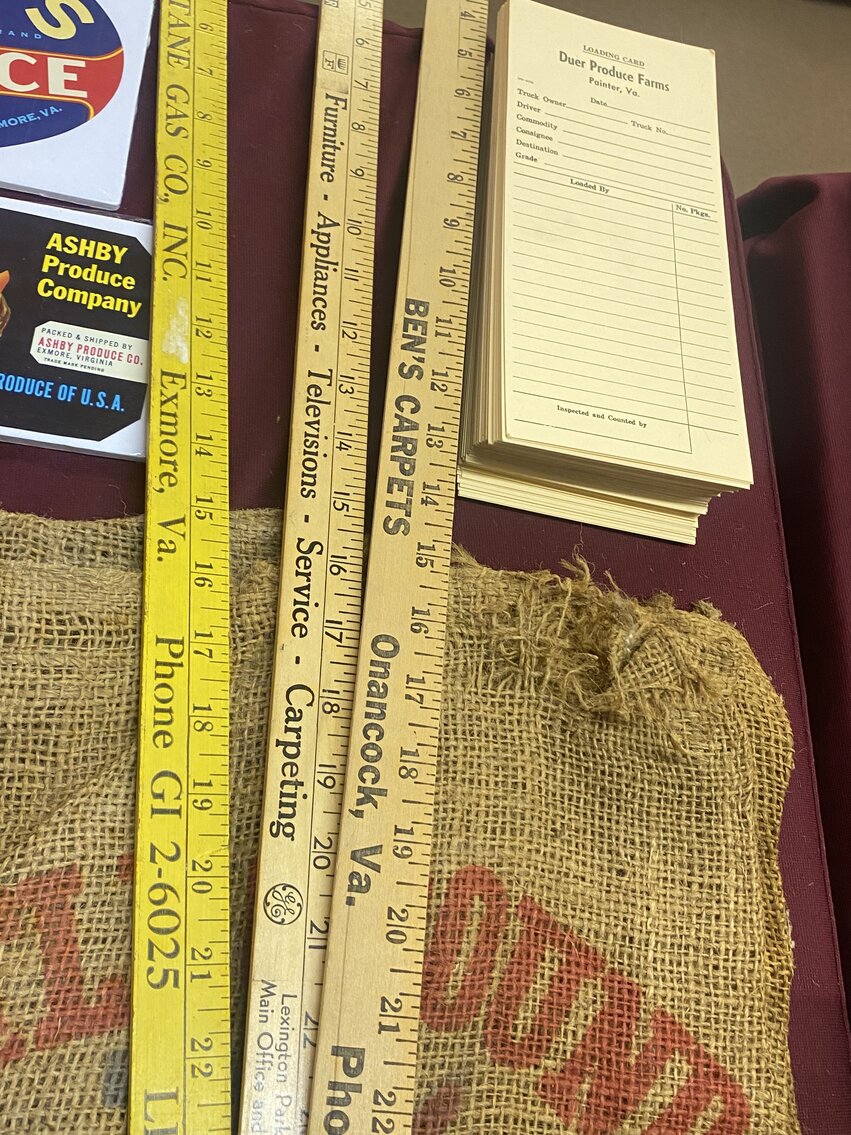 S
AND
CE
MORE, VA.
ASHBY
Produce
Company
PACKED & SHIPPED BY
ASHBY PRODUCE CO.
EXMORE, VIRGINIA
TRADE MARK PENDING
RODUCE OF U.S.A.
TANE GAS CO., INC. Exmore, Va. Phone GI 2-6025
6 7 8 9 10 11 12 13 14 15 16 17 18 19 20 21 22
Furniture - Appliances - Televisions - Service - Carpeting GE
Lexington Park
Main Office and
5 6 7 8 9 10 11 12 13 14 15 16 17 18 19 20 21 22
BEN'S CARPETS Onancock, Va. Pho
4 5 6 7 8 9 10 11 12 13 14 15 16 17 18 19 20 21 22
LOADING CARD
Duer Produce Farms
Painter, Va.
Date
Truck Owner Truck No.
Driver
Commodity
Consignee
Destination
Grade
Loaded By No. Pkgs.
Inspected and Counted by
OUND